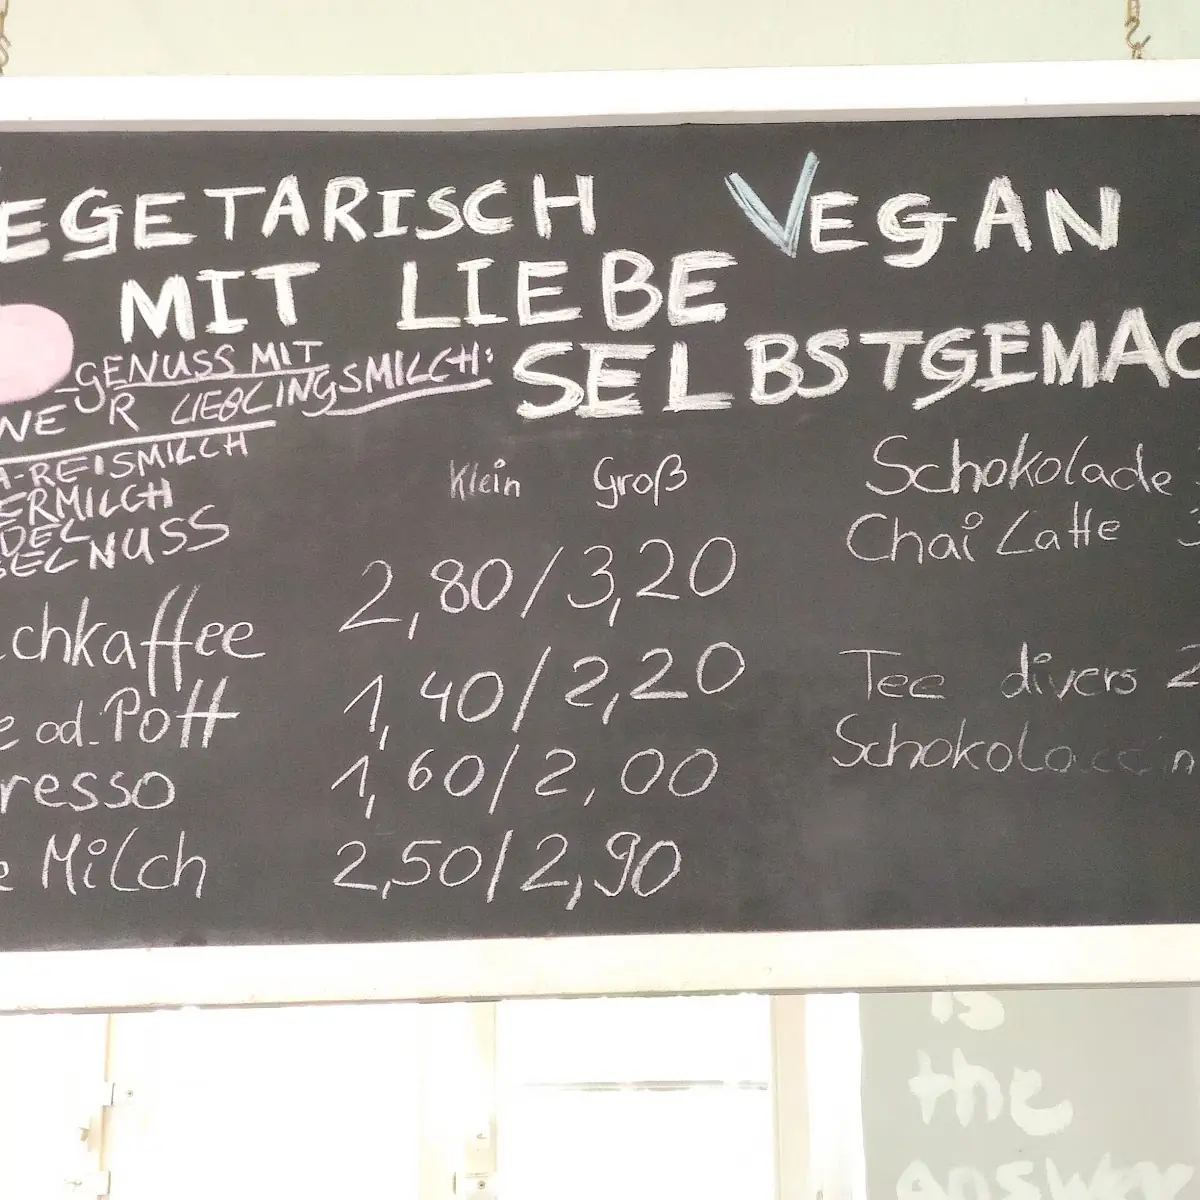 EGETARISCH VEGAN
MIT LIEBE
SELBSTGEMAC
GENUSS MIT
NE R LIEBLINGSMILCH:
A-REISMILCH
ERMILCH
DEL
SELNUSS
Klein Groß
chkaffee 2,80/3,20
e od. Pott 1,40/2,20
resso 1,60/2,00
e Milch 2,50/2,90
Schokolade
Chai Latte 3
Tee divers 2
Schokolaccin
is
the
answer